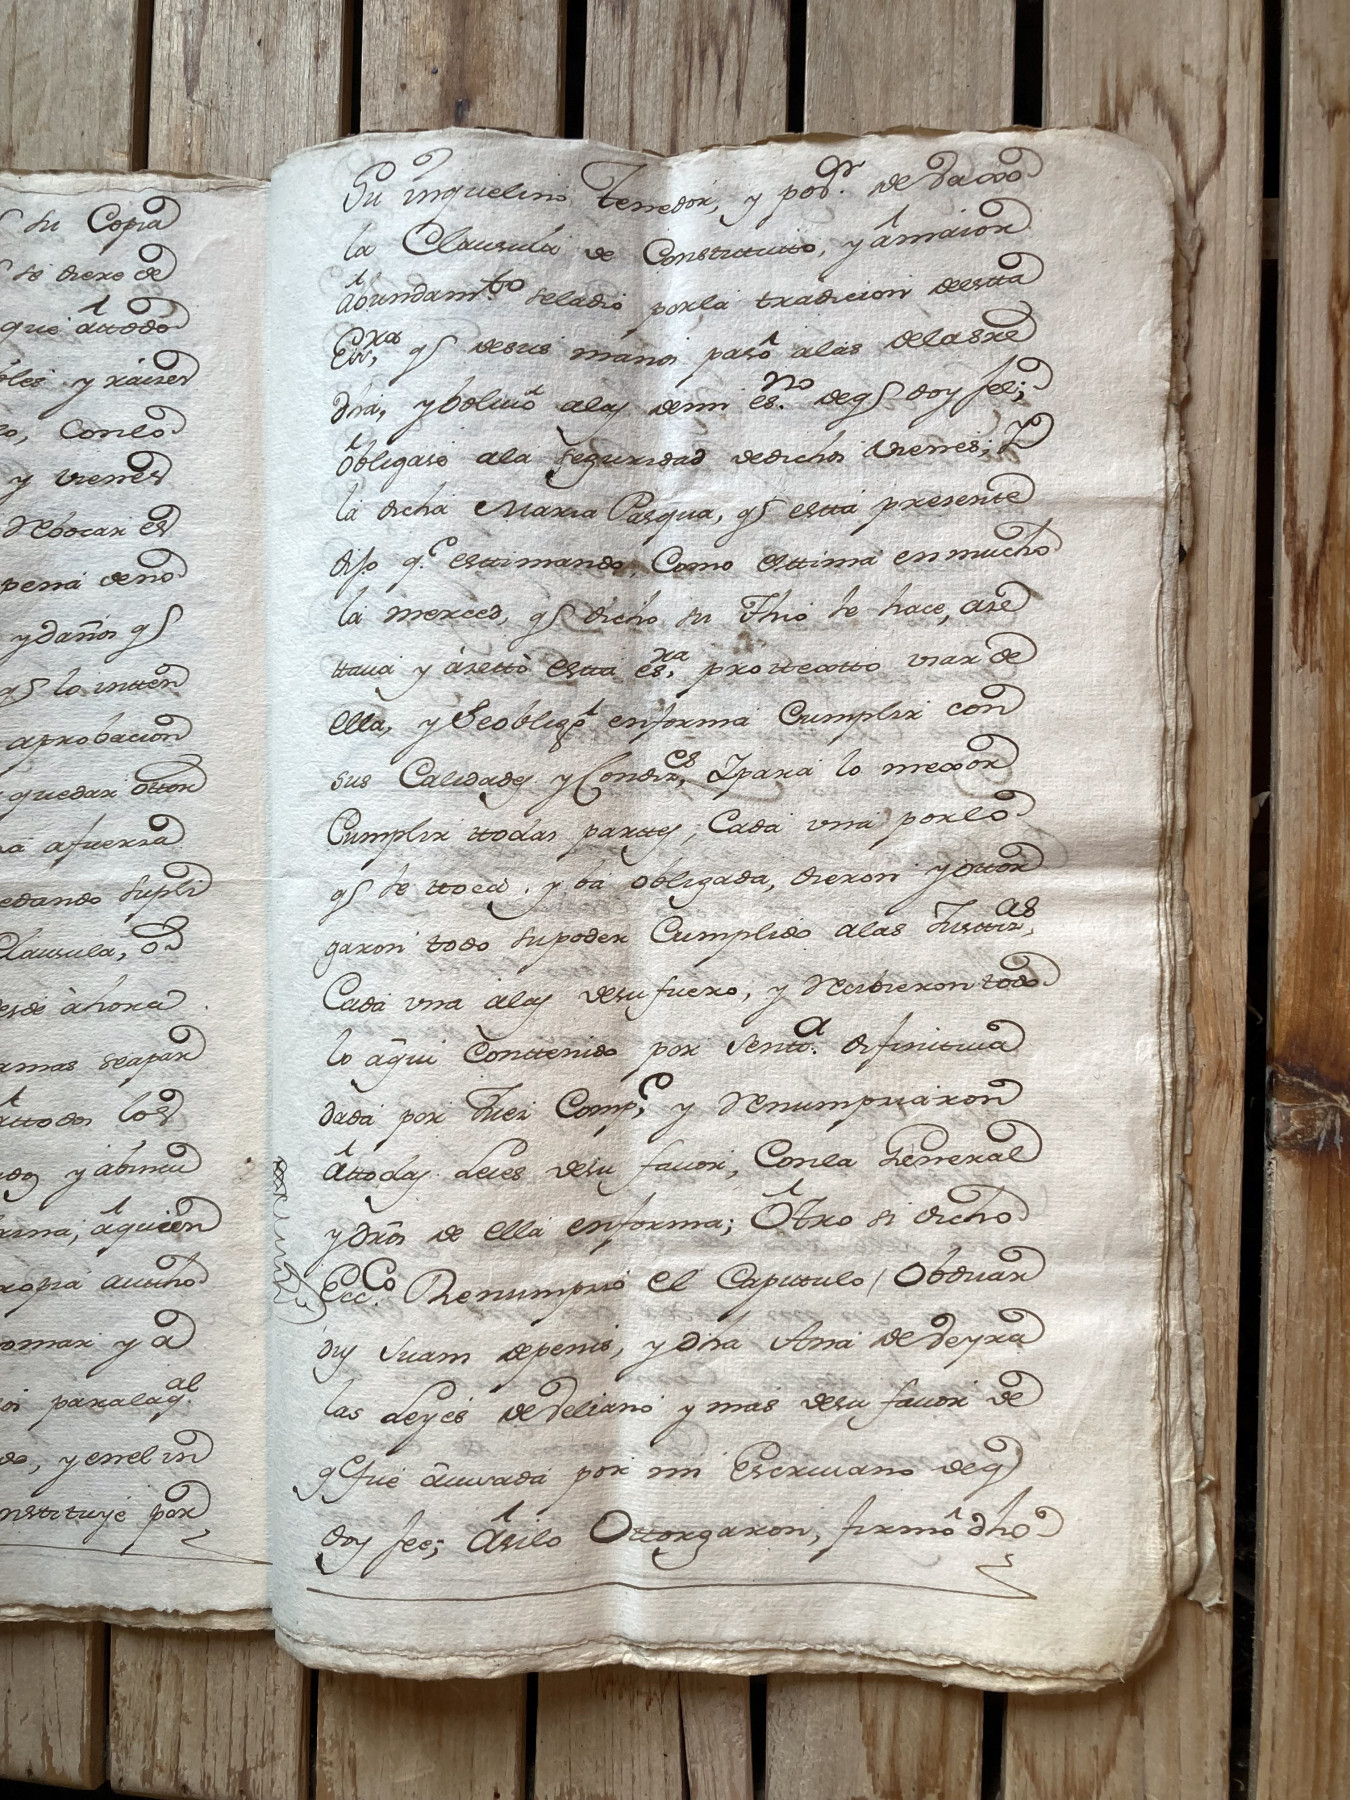 su Copia
se diere de
que âttodo
bles y raices
lo, Conlo
y vienes
Rebocar es
pena deno
y daños q
q lo intten
aprobacion
quedar ôttor
afuerza
edando supli
Clausula, o
desde âhora
amas seapar
âttodos los
y abincu
rina, âquien
ropia autho
tomar y a
paralaq.al
do, y enel in
onstituye por
Su ynquelino, Tenedor, y pod.r de vaxo
la Clausula de Constitutto, y âmaior
âbundam.to seladio porla tradicion destta
Ecr,xa q desus manos pasô alas delasre
dha, y bolviô alas demi es.no deq doy fee;
ôbligase ala seguridad dedichos vienes; Y
la dicha Maria Pasqua, q estta presente
dijo q.e esttimando, Como esttima enmucho
la merced, q dicho su Thio le hace, aze
ttava y azettô estta es,ra protextto usar de
ella, y Seobligô enforma Cumplir con
sus Calidades y Condiz,es Ypara lo mexor
Cumplir ttodas parttes, Cada una porlo
q le ttoca. y ba obligada, dieron y ottor
garon todo supoder Cumplido alas Justtiz,as
Cada una âlas desufuero, y Rezibieron todo
lo âqui Conttenido por Sentt.a difinitiva
dada por Juez Comp,e y Renumpziaron
Âttodas Leies desu favor, Conla General
y dros de ella enforma; Ôtro si dicho
Ecc.co Renumpzio el Capittulo / Obduar
dus Suam depenis, y dha Ana de Neyra
las Leyes de Veliano y mas desu favor de
q fue âvisada por mi Escrivano deq
doy fee; Âsilo Ottorgaron, firmô dho